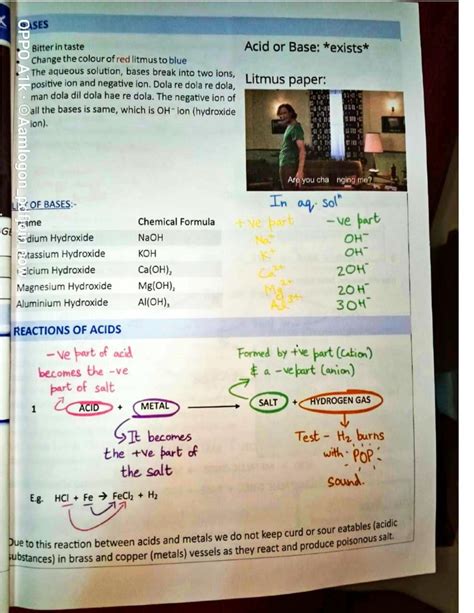 ASES
Bitter in taste
Change the colour of red litmus to blue
The aqueous solution, bases break into two ions,
positive ion and negative ion. Dola re dola re dola,
man dola dil dola hae re dola. The negative ion of
all the bases is same, which is OH⁻ ion (hydroxide
ion).
Acid or Base: *exists*
Litmus paper:
Are you cha nging me?
OF BASES:-
In aq. solⁿ
me Chemical Formula +ve part -ve part
dium Hydroxide NaOH Na⁺ OH⁻
tassium Hydroxide KOH K⁺ OH⁻
lcium Hydroxide Ca(OH)₂ Ca²⁺ 2OH⁻
Magnesium Hydroxide Mg(OH)₂ Mg²⁺ 2OH⁻
Aluminium Hydroxide Al(OH)₃ Al³⁺ 3OH⁻
REACTIONS OF ACIDS
-ve part of acid
becomes the -ve
part of salt
Formed by +ve part (Cation)
& a -ve part (anion)
1 ACID + METAL → SALT + HYDROGEN GAS
It becomes
the +ve part of
the salt
Test - H₂ burns
with POP
sound.
E.g. HCl + Fe → FeCl₂ + H₂
Due to this reaction between acids and metals we do not keep curd or sour eatables (acidic
substances) in brass and copper (metals) vessels as they react and produce poisonous salt.
OPPO A1k